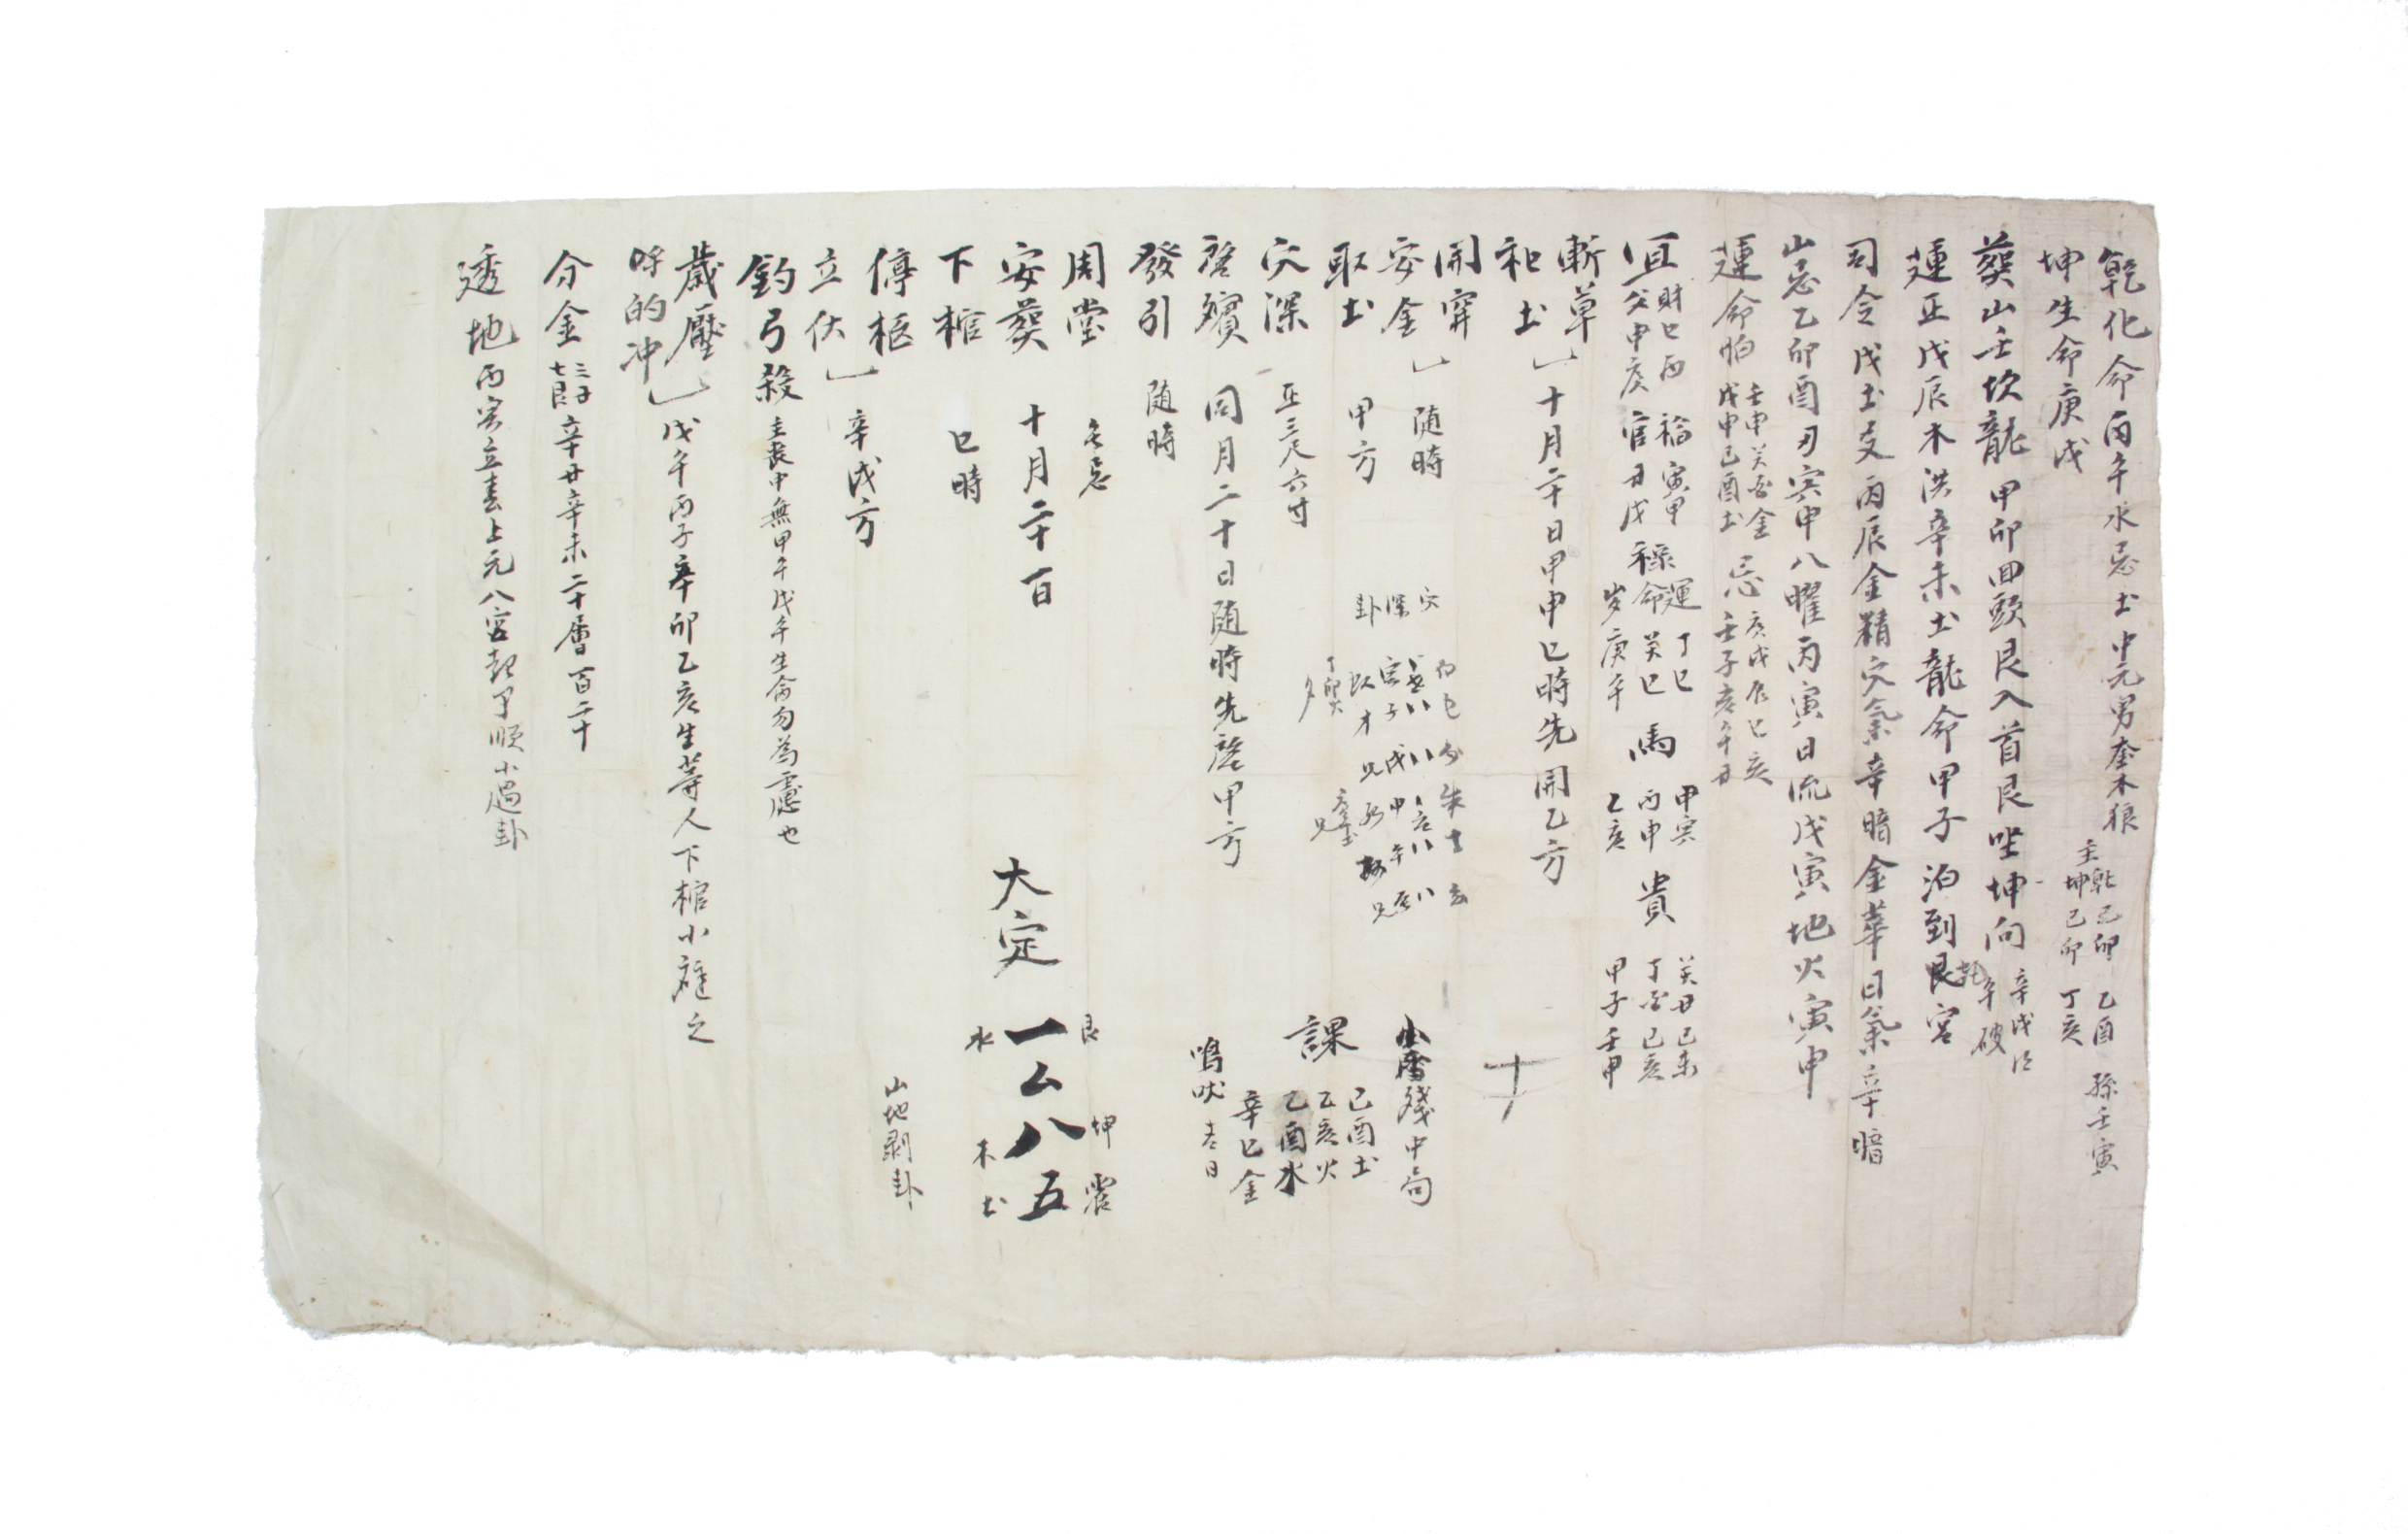 乾化命丙午水忌土中元男奎木狼
主乾己卯 乙酉 孫壬寅
坤己卯 丁亥
坤生命庚戌
葬山壬坎龍甲卯回頭艮入首艮坐坤向
辛戌得
午破
運正戊辰木洪辛未土龍命甲子泊到艮宮
司令戊土爻丙辰金精穴氣辛暗金華日氣辛暗
山忌乙卯酉丑寅申八曜丙寅日流戊寅地火寅申
運命怕
壬申癸酉金
戊申己酉土
忌
庚戌辰巳亥
壬子亥午丑
宜
財巳丙
父甲庚
福寅甲
官丑戌
祿
運丁巳
命癸巳
岁庚午
馬
甲寅
丙申
乙亥
貴
癸丑己未
丁酉己亥
甲子壬申
斬草
祀土
十月二十日甲申巳時先開乙方
開穽
安金
隨時
取土 甲方
穴深 正三尺六寸
穴深卦
課
己酉土
乙亥火
乙酉水
辛巳金
鳴吠 吉日
啓殯 同月二十日隨時先啓甲方
發引 隨時
周堂 無忌
安葬 十月二十一日
下棺 巳時
大定 一 八五
艮 坤 震
水 木 土
山地剥卦
停柩
立伏
辛戌方
釣弓殺 主喪中無甲午戊午生命勿為慮也
歲壓
呼的冲
戊午丙子辛卯乙亥生等人下棺小避之
分金 辛丑辛未二十層百二十
透地 丙寅立春上元八宮起甲子順小過卦